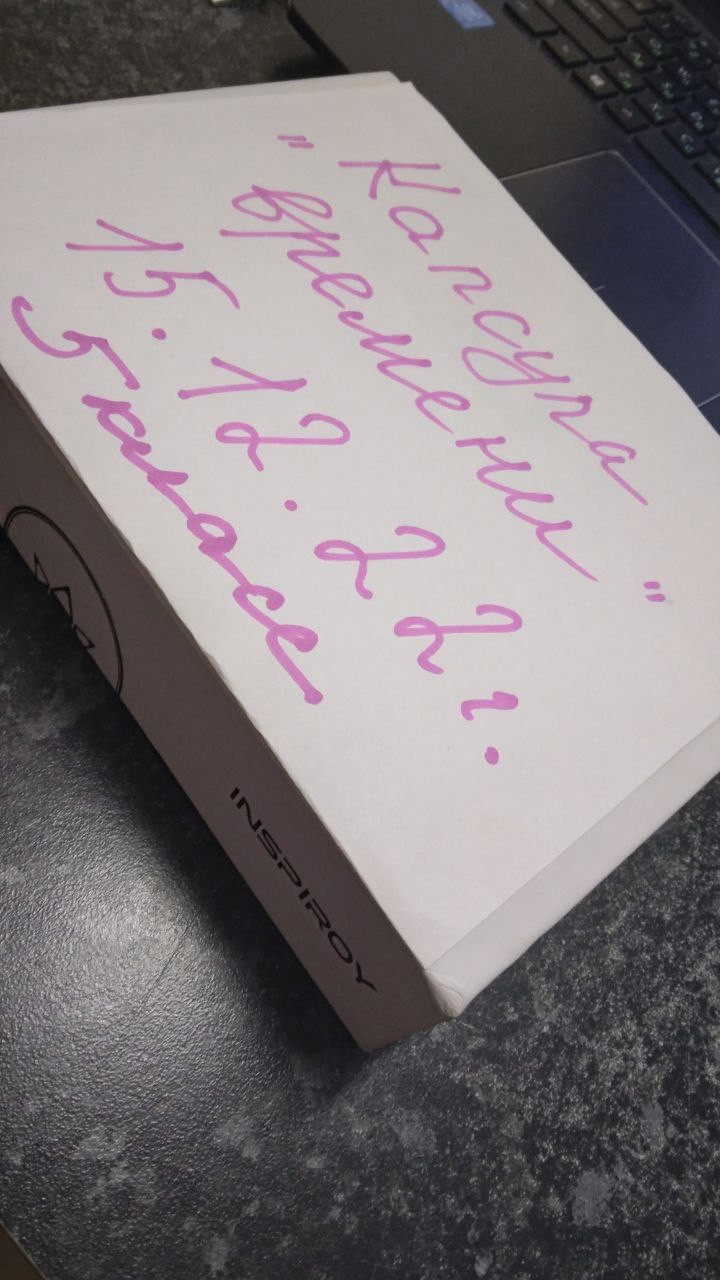 "Капсула
времени"
15.12.22г.
5 класс
INSPIROY